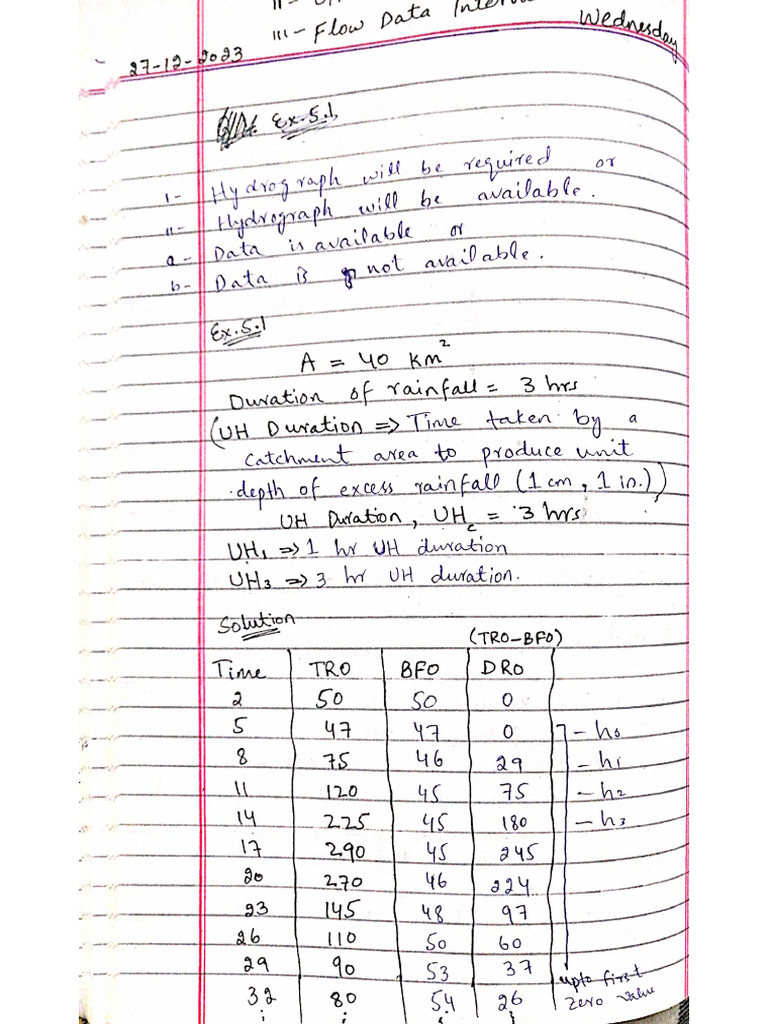 II-
III- Flow Data Interv
Wednesday
27-12-2023
Ex.5.1,
I- Hydrograph will be required or
II- Hydrograph will be available.
a- Data is available or
b- Data is not available.
Ex.5.1
A = 40 Km²
Duration of rainfall = 3 hrs
(UH Duration => Time taken by a
catchment area to produce unit
depth of excess rainfall (1 cm, 1 in.))
UH Duration, UHc = 3 hrs
UH1 => 1 hr UH duration
UH3 => 3 hr UH duration.
Solution
(TRO-BFO)
Time TRO BFO DRO
2 50 50 0
5 47 47 0 - h0
8 75 46 29 - h1
11 120 45 75 - h2
14 225 45 180 - h3
17 290 45 245
20 270 46 224
23 145 48 97
26 110 50 60
29 90 53 37 upto first
32 80 54 26 zero value